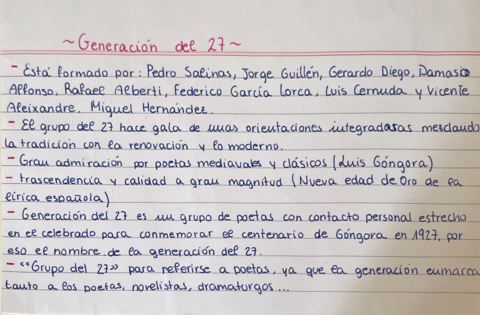 ~Generación del 27~
- Está formado por: Pedro Salinas, Jorge Guillén, Gerardo Diego, Damaso
Alfonso, Rafael Alberti, Federico García Lorca, Luis Cernuda y Vicente
Aleixandre. Miguel Hernández.
- El grupo del 27 hace gala de unas orientaciones integradoras mezclando
la tradición con la renovación y lo moderno.
- Gran admiración por poetas mediavales y clásicos (Luis Góngora)
- trascendencia y calidad a gran magnitud (Nueva edad de Oro de la
lírica española)
- Generación del 27 es un grupo de poetas con contacto personal estrecho
en el celebrado para conmemorar el centenario de Góngora en 1927, por
eso el nombre de la generación del 27.
- "Grupo del 27» para referirse a poetas, ya que la generación eumarca
tanto a los poetas, novelistas, dramaturgos...